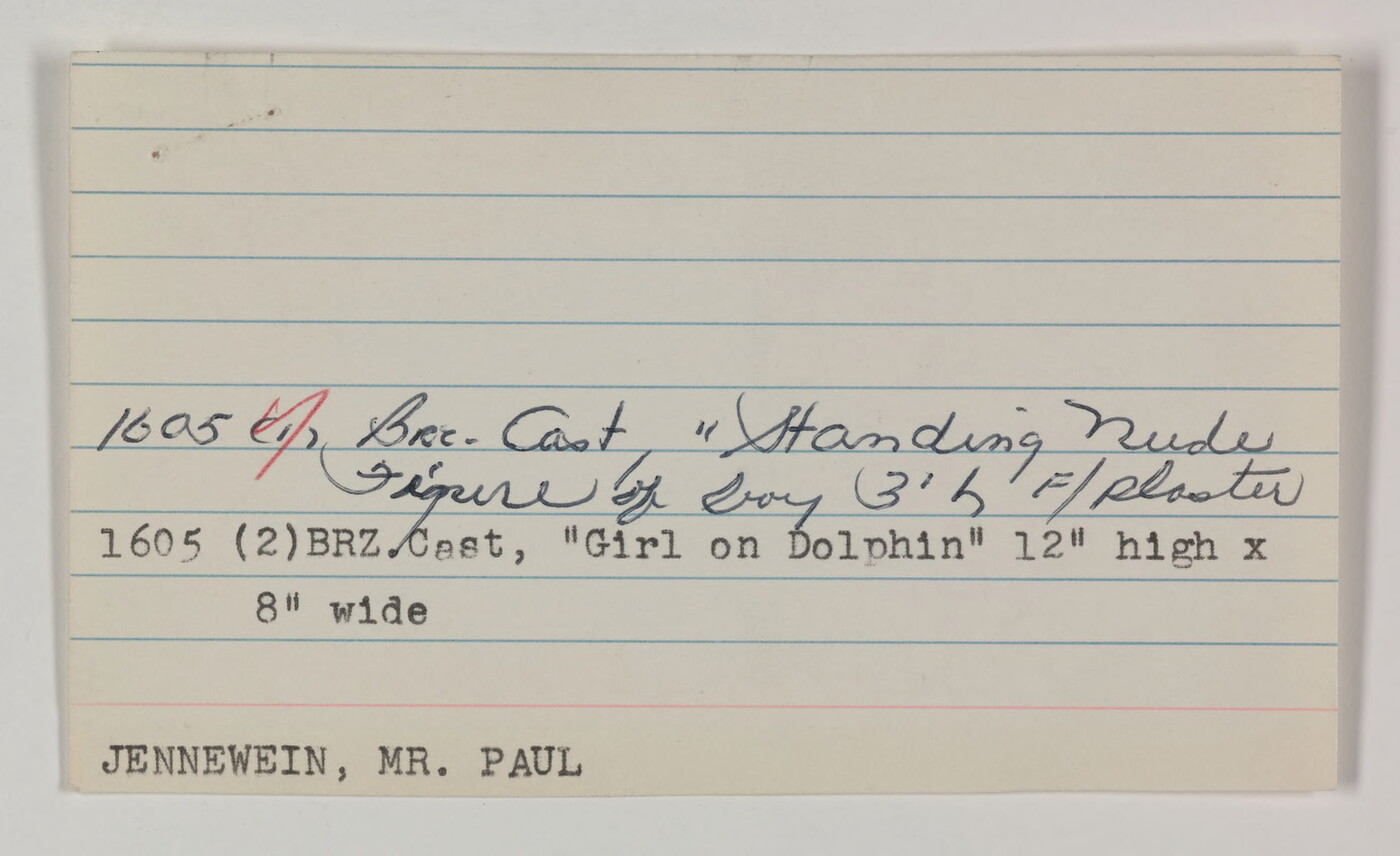 1605 (1) Brz. Cast, "Standing Nude
Figure of boy (3' h F/plaster
1605 (2)BRZ.Cast, "Girl on Dolphin" 12" high x
8" wide
JENNEWEIN, MR. PAUL